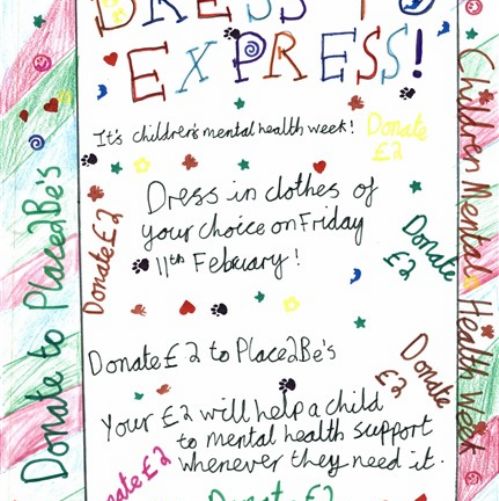 DRESS TO
EXPRESS!
It's children's mental health week!
Donate
£2
Dress in clothes of
your choice on Friday
11th Febuary!
Donate £2
Donate
£2
Donate £2 to Place2Be's
Donate
£2
Your £2 will help a child
to mental health support
whenever they need it.
Donate £2
Donate £2
Donate to Place2Be's
Children Mental Health Week